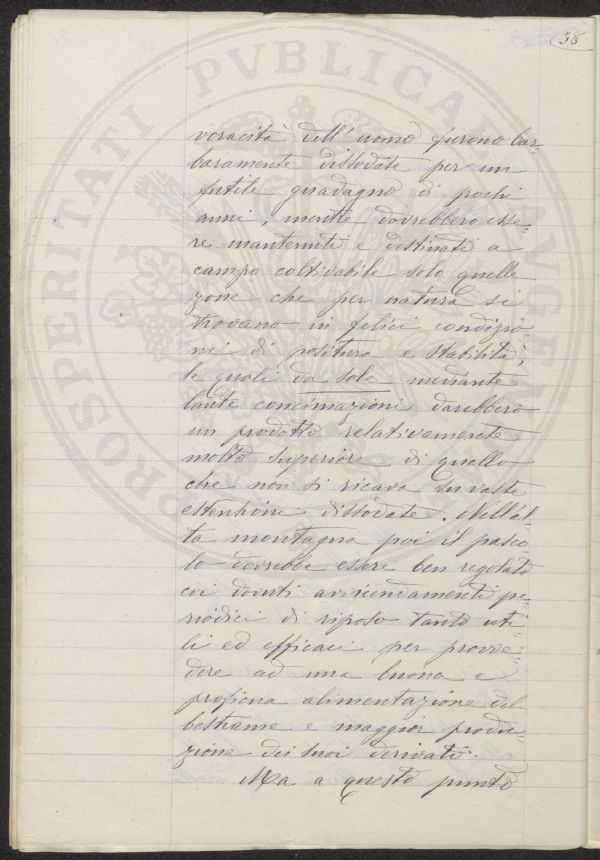 38
voracità dell'uomo furono bar-
baramente dissodate per un
futile guadagno di pochi
anni, mentre dovrebbero esse-
re mantenuti e destinati a
campo coltivabile solo quelle
zone che per natura si
trovano in felici condizio-
ni di positura e stabilità,
le quali da sole mediante
laute concimazioni darebbero
un prodotto relativamente
molto superiore di quello
che non si ricava su vaste
estensioni dissodate. Nell'al-
ta montagna poi il pasco-
lo dovrebbe essere ben regolato
coi dovuti avvicendamenti pe-
riodici di riposo tanto uti-
li ed efficaci per provve-
dere ad una buona e
proficua alimentazione del
bestiame e maggior produ-
zione dei suoi derivati.
Ma a questo punto
PROSPERITATI PVBLICAE AVGENDAE